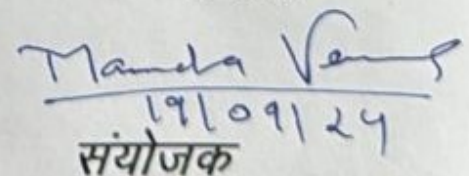 Mamta Verma
19/09/24
संयोजक